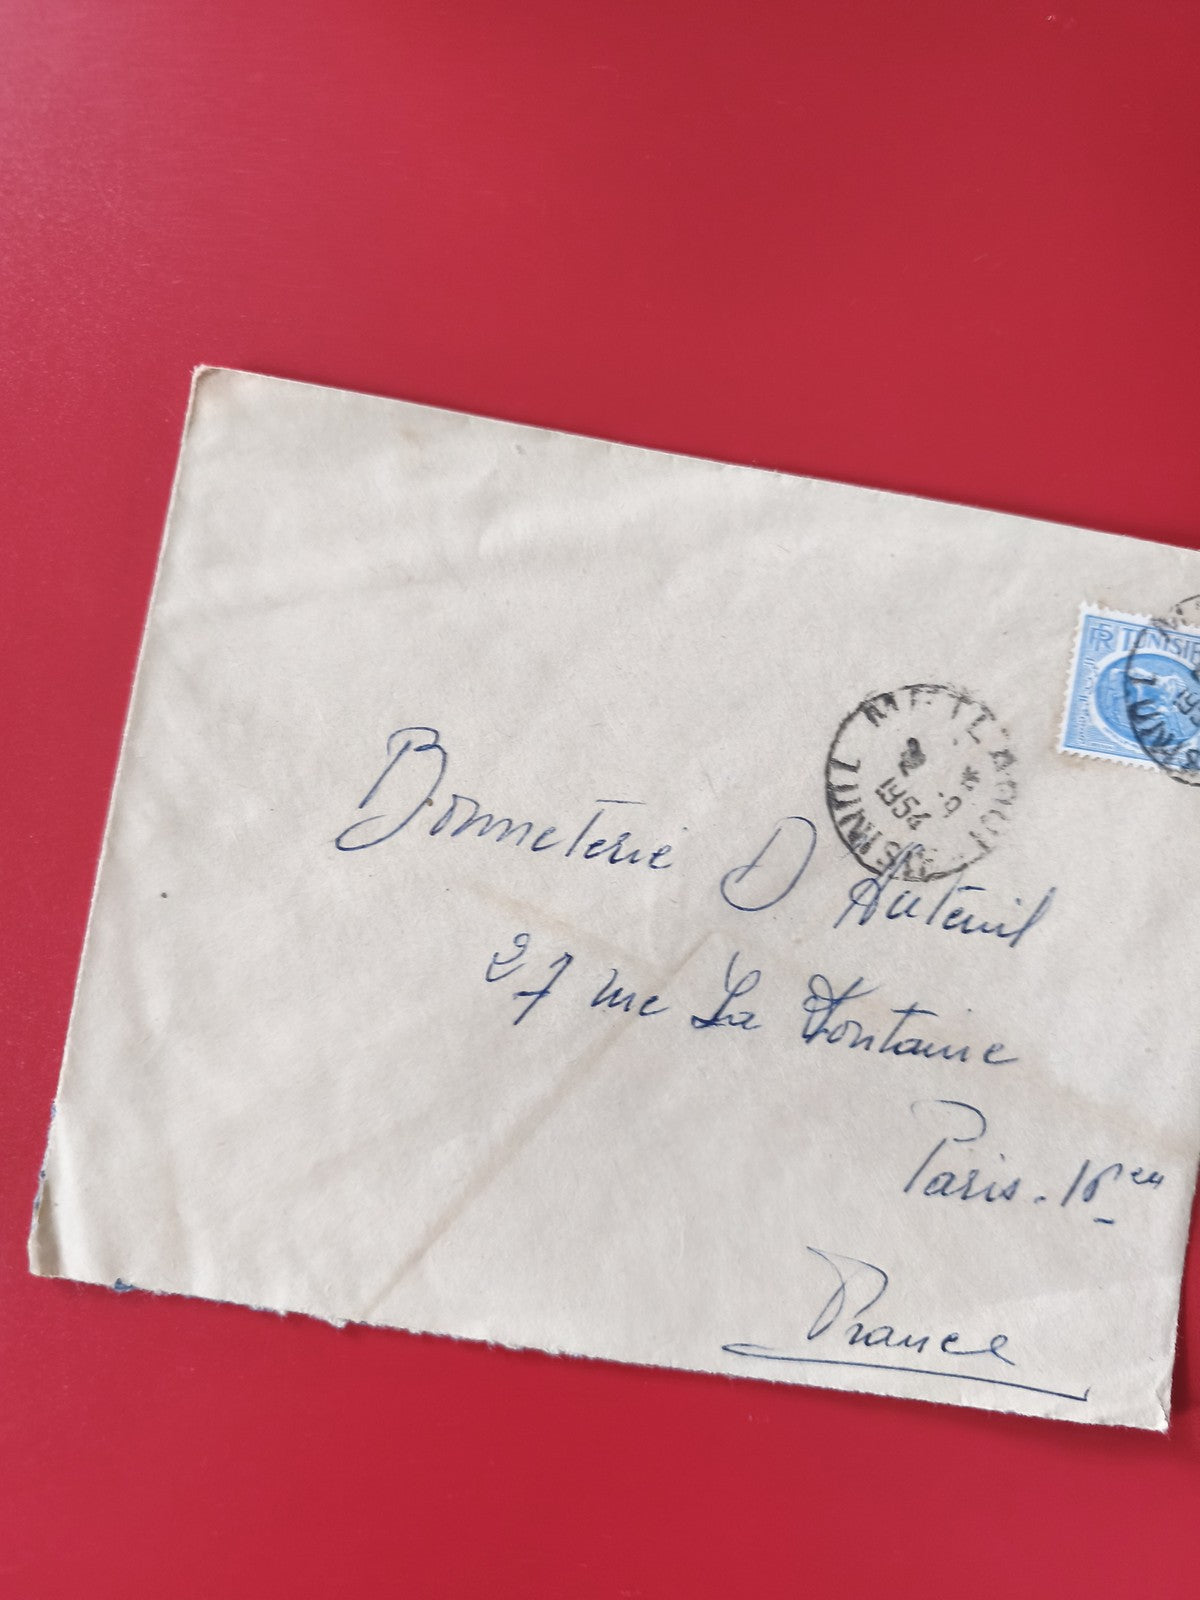 RF TUNISIE
1954
Bonneterie D'Auteuil
27 rue La Fontaine
Paris-16em
France